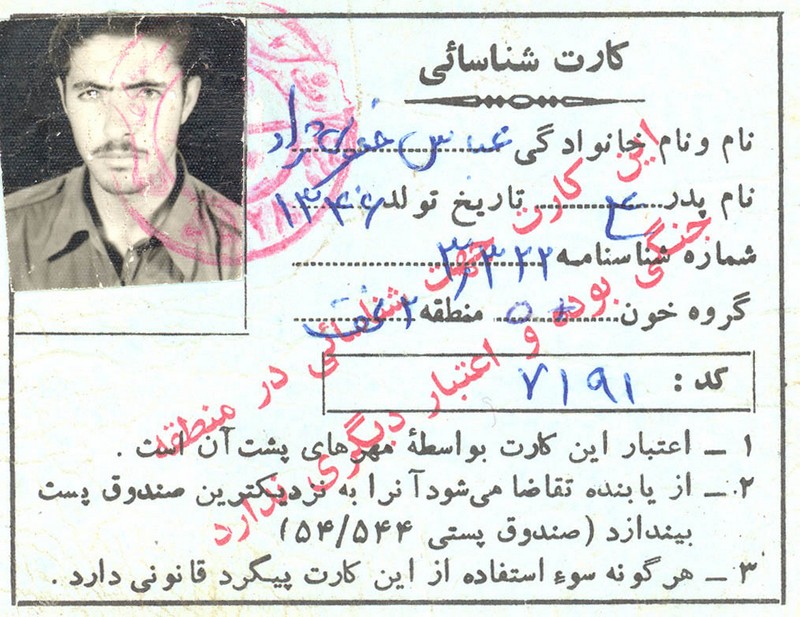 کارت شناسائی
نام ونام خانوادگی عباس
نام پدر تاریخ تولد ۱۳۴۶
شماره شناسنامه
گروه خون O+ منطقه ۲
کد : ۷۱۹۱
۱ ــ اعتبار این کارت بواسطهٔ مهرهای پشت آن است .
۲ ــ از یابنده تقاضا می‌شود آنرا به نزدیکترین صندوق پست
بیندازد (صندوق پستی ۵۴/۵۴۴)
۳ ــ هرگونه سوء استفاده از این کارت پیگرد قانونی دارد .
این کارت جهت شناسائی در منطقه
جنگی بوده و اعتبار دیگری ندارد